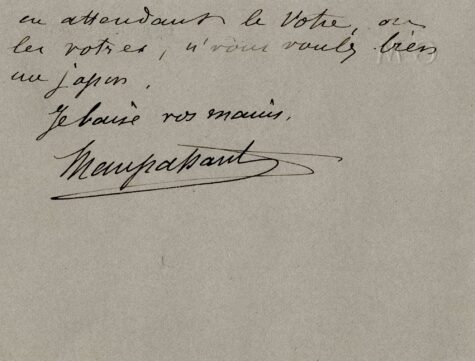 en attendant le Votre, ou
les votres, si vous voulez bien
me
Je baise vos mains.
Maupassant